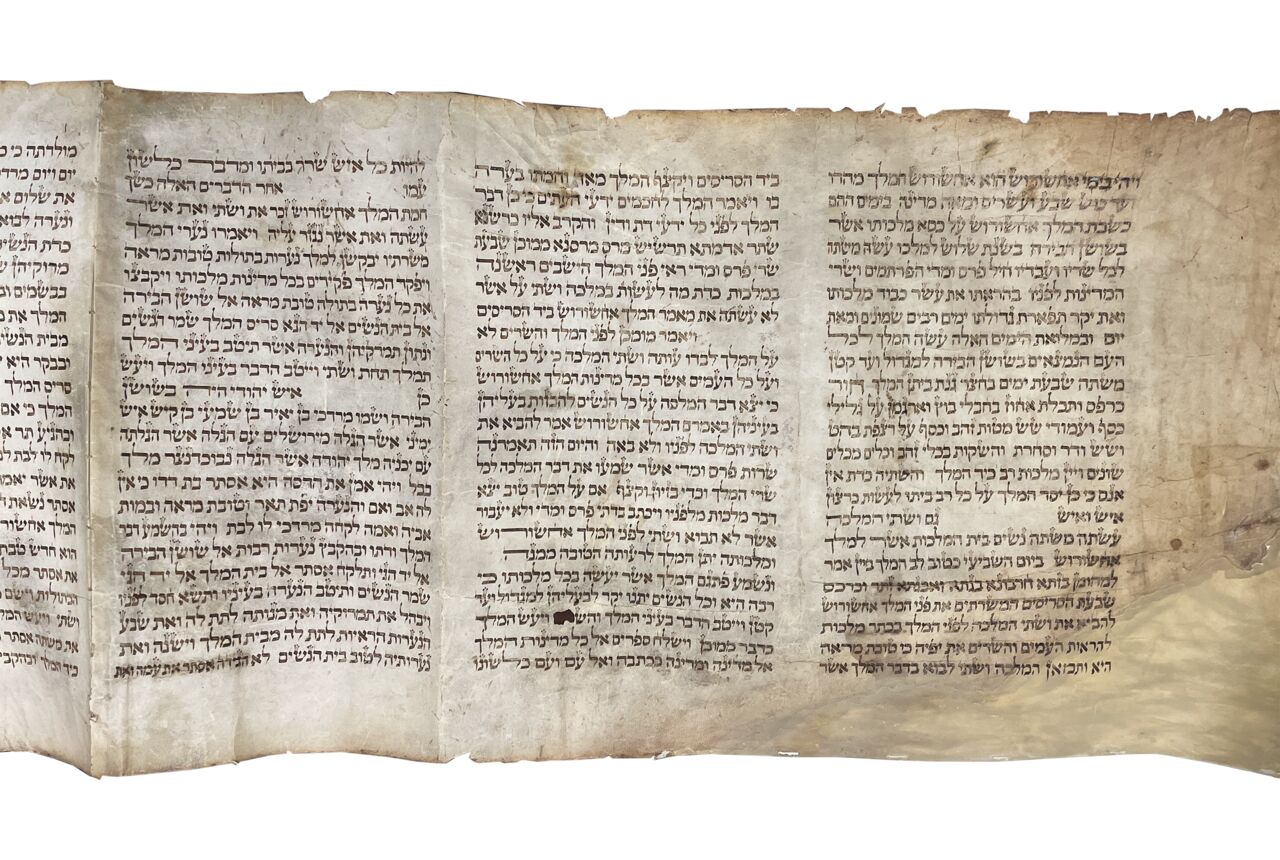 ויהי בימי אחשורוש הוא אחשורוש המלך מהדו
ועד כוש שבע ועשרים ומאה מדינה בימים ההם
כשבת המלך אחשורוש על כסא מלכותו אשר
בשושן הבירה בשנת שלוש למלכו עשה משתה
לכל שריו ועבדיו חיל פרס ומדי הפרתמים ושרי
המדינות לפניו בהראתו את עשר כבוד מלכותו
ואת יקר תפארת גדולתו ימים רבים שמונים ומאת
יום ובמלואת הימים האלה עשה המלך לכל
העם הנמצאים בשושן הבירה למגדול ועד קטן
משתה שבעת ימים בחצר גנת ביתן המלך חור
כרפס ותכלת אחוז בחבלי בוץ וארגמן על גלילי
כסף ועמודי שש מטות זהב וכסף על רצפת בהט
ושש ודר וסחרת והשקות בכלי זהב וכלים מכלים
שונים ויין מלכות רב כיד המלך והשתיה כדת אין
אנס כי כן יסד המלך על כל רב ביתו לעשות כרצון
איש ואיש גם ושתי המלכה
עשתה משתה נשים בית המלכות אשר למלך
אחשורוש ביום השביעי כטוב לב המלך ביין אמר
למהומן בזתא חרבונא בגתא ואבגתא זתר וכרכס
שבעת הסריסים המשרתים את פני המלך אחשורוש
להביא את ושתי המלכה לפני המלך בכתר מלכות
להראות העמים והשרים את יפיה כי טובת מראה
היא ותמאן המלכה ושתי לבוא בדבר המלך אשר
ביד הסריסים ויקצף המלך מאד וחמתו בערה
בו ויאמר המלך לחכמים ידעי העתים כי כן דבר
המלך לפני כל ידעי דת ודין והקרב אליו כרשנא
שתר אדמתא תרשיש מרס מרסנא ממוכן שבעת
שרי פרס ומדי ראי פני המלך הישבים ראשנה
במלכות כדת מה לעשות במלכה ושתי על אשר
לא עשתה את מאמר המלך אחשורוש ביד הסריסים
ויאמר מומכן לפני המלך והשרים לא
על המלך לבדו עותה ושתי המלכה כי על כל השרים
ועל כל העמים אשר בכל מדינות המלך אחשורוש
כי יצא דבר המלכה על כל הנשים להבזות בעליהן
בעיניהן באמרם המלך אחשורוש אמר להביא את
ושתי המלכה לפניו ולא באה והיום הזה תאמרנה
שרות פרס ומדי אשר שמעו את דבר המלכה לכל
שרי המלך וכדי בזיון וקצף אם על המלך טוב יצא
דבר מלכות מלפניו ויכתב בדתי פרס ומדי ולא יעבור
אשר לא תבוא ושתי לפני המלך אחשורוש
ומלכותה יתן המלך לרעותה הטובה ממנה
ונשמע פתגם המלך אשר יעשה בכל מלכותו כי
רבה היא וכל הנשים יתנו יקר לבעליהן למגדול ועד
קטן וייטב הדבר בעיני המלך ויעש המלך
כדבר ממוכן וישלח ספרים אל כל מדינות המלך
אל מדינה ומדינה ככתבה ואל עם ועם כלשונו
להיות כל איש שרר בביתו ומדבר כלשון
עמו אחר הדברים האלה כשך
חמת המלך אחשורוש זכר את ושתי ואת אשר
עשתה ואת אשר נגזר עליה ויאמרו נערי המלך
משרתיו יבקשו למלך נערות בתולות טובות מראה
ויפקד המלך פקידים בכל מדינות מלכותו ויקבצו
את כל נערה בתולה טובת מראה אל שושן הבירה
אל בית הנשים אל יד הגא סריס המלך שמר הנשים
ונתון תמרקיהן והנערה אשר תיטב בעיני המלך
תמלך תחת ושתי וייטב הדבר בעיני המלך ויעש
כן איש יהודי היה בשושן
הבירה ושמו מרדכי בן יאיר בן שמעי בן קיש איש
ימיני אשר הגלה מירושלים עם הגלה אשר הגלתה
עם יכניה מלך יהודה אשר הגלה נבוכדנצר מלך
בבל ויהי אמן את הדסה היא אסתר בת דדו כי אין
לה אב ואם והנערה יפת תאר וטובת מראה ובמות
אביה ואמה לקחה מרדכי לו לבת ויהי בהשמע דבר
המלך ודתו ובהקבץ נערות רבות אל שושן הבירה
אל יד הגי ותלקח אסתר אל בית המלך אל יד הגי
שמר הנשים ותיטב הנערה בעיניו ותשא חסד לפניו
ויבהל את תמרוקיה ואת מנותה לתת לה ואת שבע
הנערות הראיות לתת לה מבית המלך וישנה ואת
נערותיה לטוב בית הנשים לא הגידה אסתר את עמה ואת
מולדתה כי
יום ויום
את שלום
ונערה לבוא
כדת הנשים
מרוקיהן
בבשמים
המלך את
מבית הנשים
ובבקר היא
סריס המלך
המלך כי אם
ובהגיע תר
לקח לו לבת
את אשר
אסתר נשאת
המלך
הוא חדש טבת
את אסתר מכל
הבתולות וישם
ושתי ויעש
את משתה אסתר
כיד המלך ובהקבץ